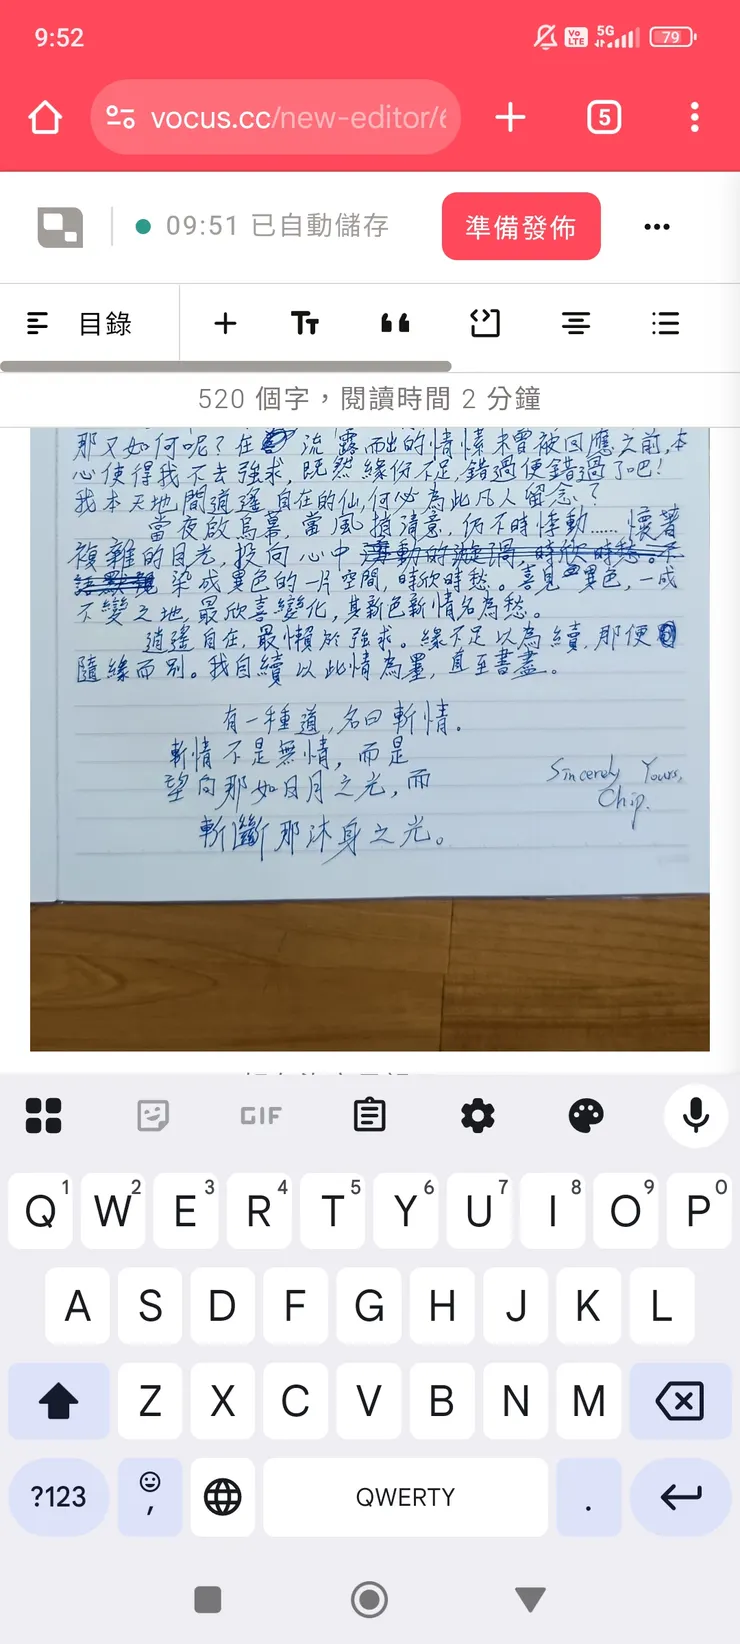 9:52
Vo LTE
5G
79
vocus.cc/new-editor/6
5
09:51 已自動儲存
準備發佈
目錄
520 個字，閱讀時間 2 分鐘
那又如何呢？在 流露而出的情愫未曾被回應之前，本
心使得我不去強求，既然緣份不足，錯過便錯過了吧！
我本天地間逍遙自在的仙，何必為此凡人留念？
當夜啟烏幕，當風捎清意，仍不時悸動……懷著
複雜的目光，投向心中
染成異色的一片空間，時欣時愁。喜見異色，一成
不變之地，最欣喜變化，其新色新情名為愁。
逍遙自在，最懶於強求。緣不足以為續，那便
隨緣而別。我自續以此情為墨，直至書盡。
有一種道，名曰斬情。
斬情不是無情，而是
望向那如日月之光，而
斬斷那沐身之光。
Sincerely Yours,
Chip.
GIF
Q1 W2 E3 R4 T5 Y6 U7 I8 O9 P0
A S D F G H J K L
Z X C V B N M
?123 , QWERTY .